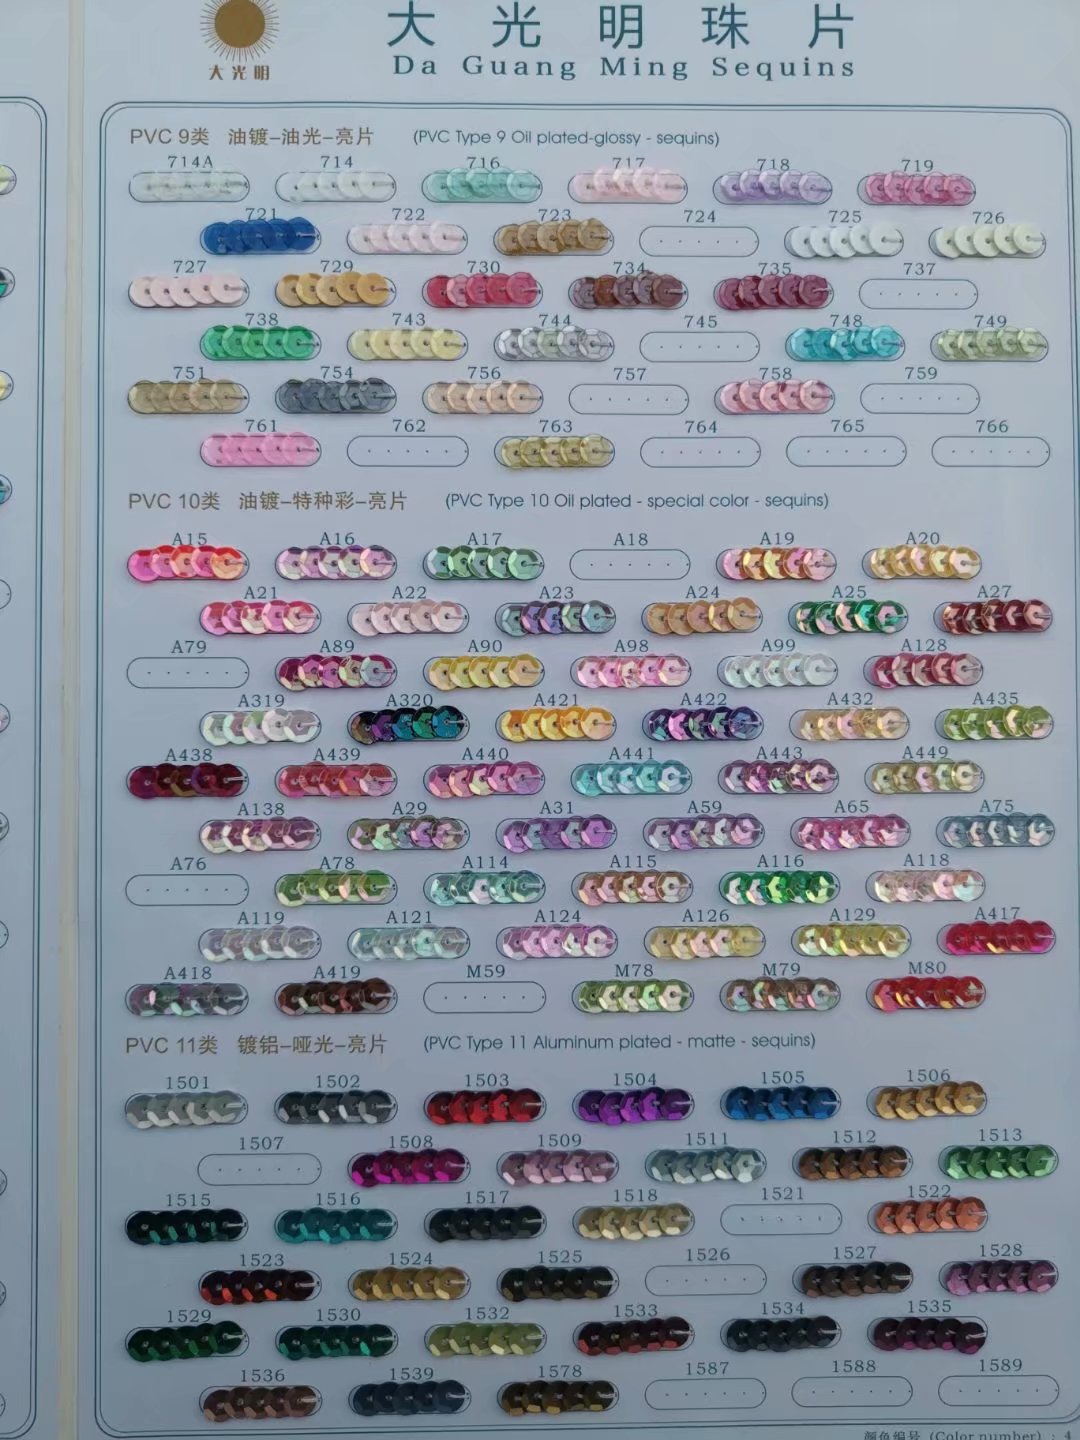 大光明
大光明珠片
Da Guang Ming Sequins
PVC 9类 油镀-油光-亮片 (PVC Type 9 Oil plated-glossy - sequins)
714A 714 716 717 718 719
721 722 723 724 725 726
727 729 730 734 735 737
738 743 744 745 748 749
751 754 756 757 758 759
761 762 763 764 765 766
PVC 10类 油镀-特种彩-亮片 (PVC Type 10 Oil plated - special color - sequins)
A15 A16 A17 A18 A19 A20
A21 A22 A23 A24 A25 A27
A79 A89 A90 A98 A99 A128
A319 A320 A421 A422 A432 A435
A438 A439 A440 A441 A443 A449
A138 A29 A31 A59 A65 A75
A76 A78 A114 A115 A116 A118
A119 A121 A124 A126 A129 A417
A418 A419 M59 M78 M79 M80
PVC 11类 镀铝-哑光-亮片 (PVC Type 11 Aluminum plated - matte - sequins)
1501 1502 1503 1504 1505 1506
1507 1508 1509 1511 1512 1513
1515 1516 1517 1518 1521 1522
1523 1524 1525 1526 1527 1528
1529 1530 1532 1533 1534 1535
1536 1539 1578 1587 1588 1589
颜色编号 (Color number) : 4